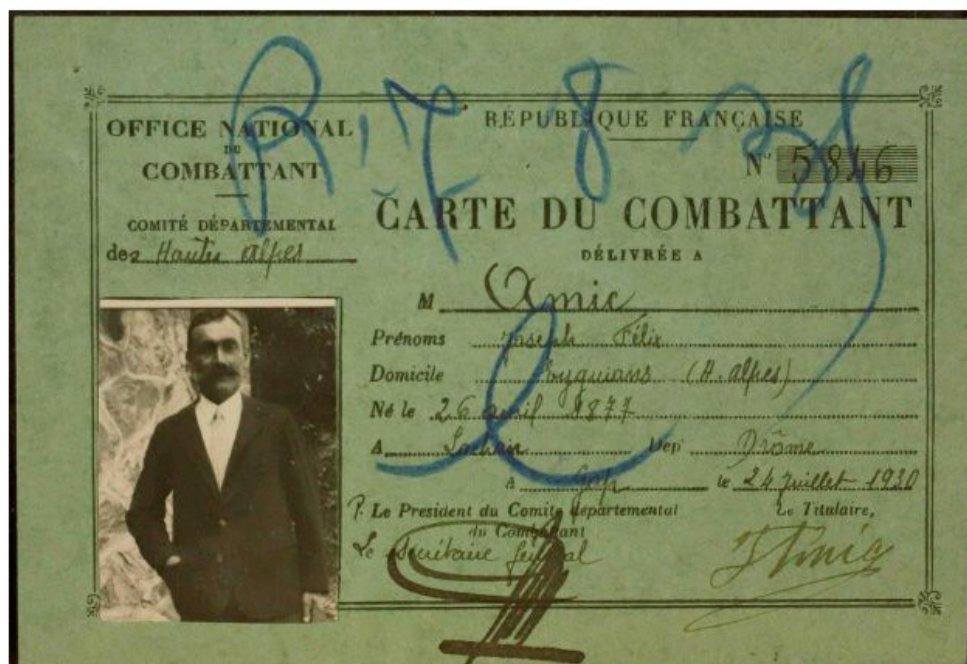 R. 7 8
OFFICE NATIONAL
DU
COMBATTANT
COMITÉ DÉPARTEMENTAL
des Hautes Alpes
RÉPUBLIQUE FRANÇAISE
N° 5846
CARTE DU COMBATTANT
DÉLIVRÉE A
M Amic
Prénoms Joseph Félix
Domicile Eyguians (H. Alpes)
Né le 26 avril 1877
A Dep' Drôme
A Gap le 24 Juillet 1930
P. Le President du Comité départemental
du Combattant
Le secrétaire général
Le Titulaire,
JAmic